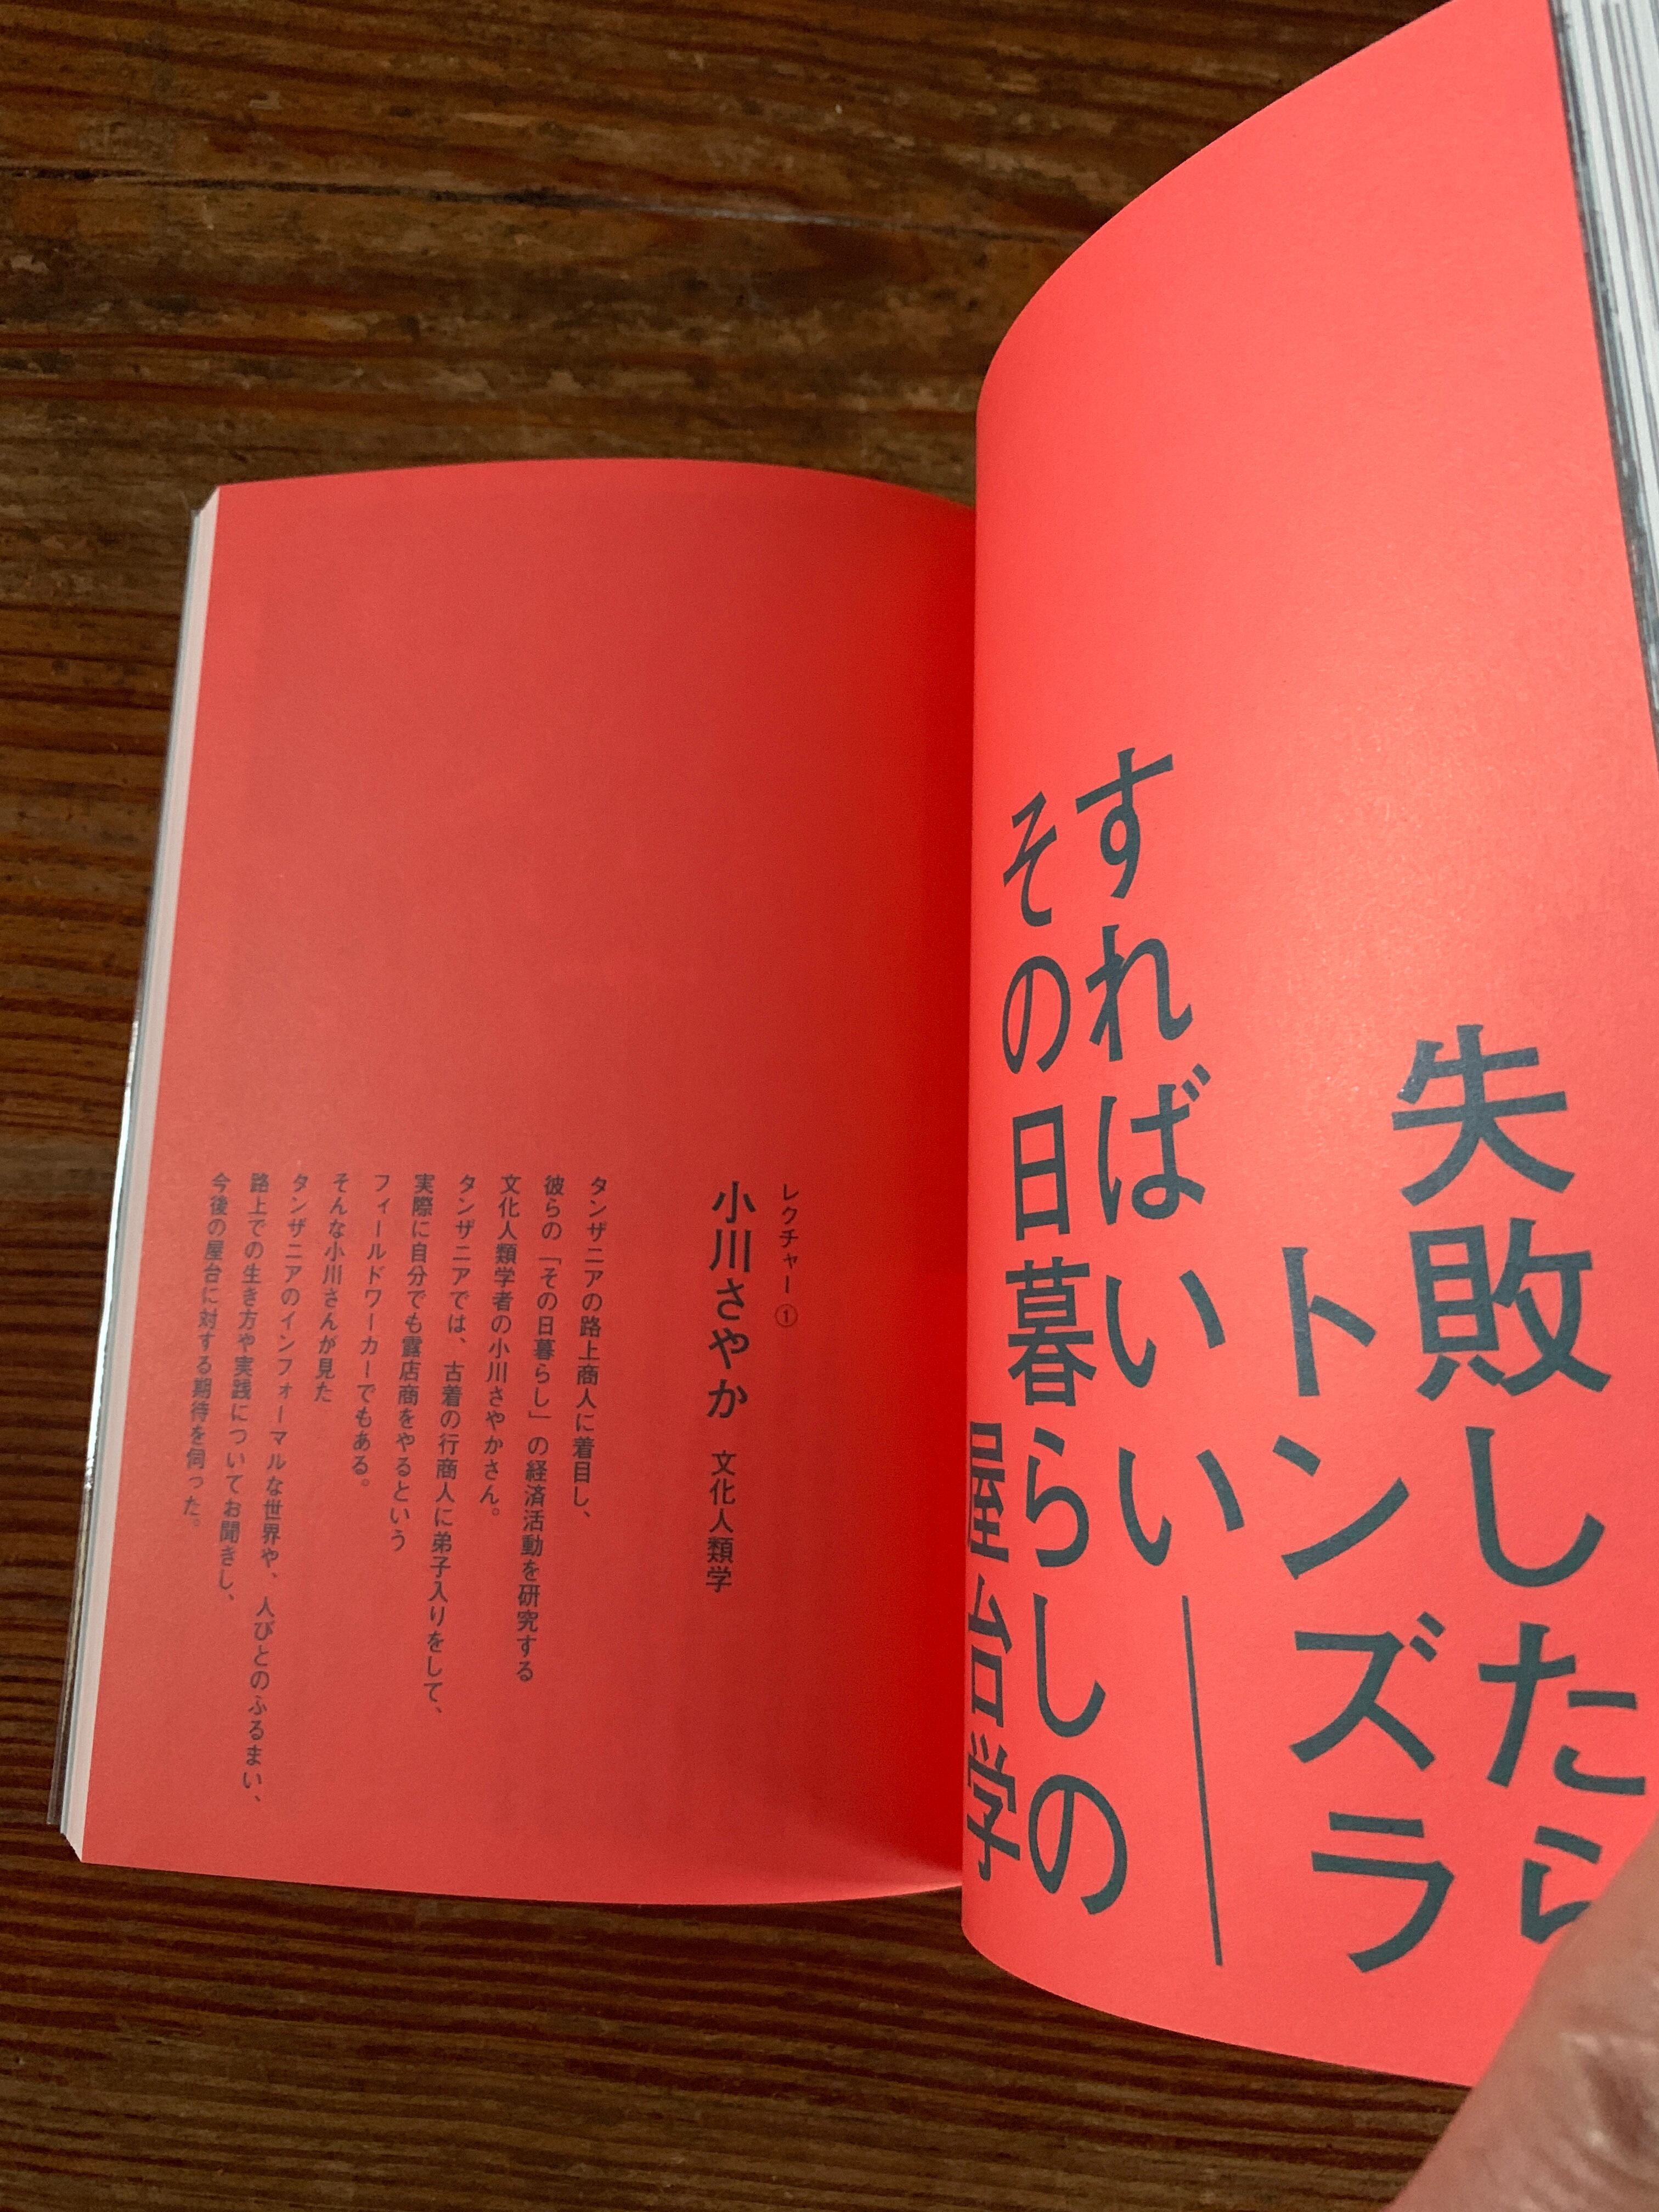 失敗したら
トンズラ
すればいい
その日暮らしの
屋台学
レクチャー①
小川さやか 文化人類学
タンザニアの路上商人に着目し、
彼らの「その日暮らし」の経済活動を研究する
文化人類学者の小川さやかさん。
タンザニアでは、古着の行商人に弟子入りをして、
実際に自分でも露店商をやるという
フィールドワーカーでもある。
そんな小川さんが見た
タンザニアのインフォーマルな世界や、人びとのふるまい、
路上での生き方や実践についてお聞きし、
今後の屋台に対する期待を伺った。